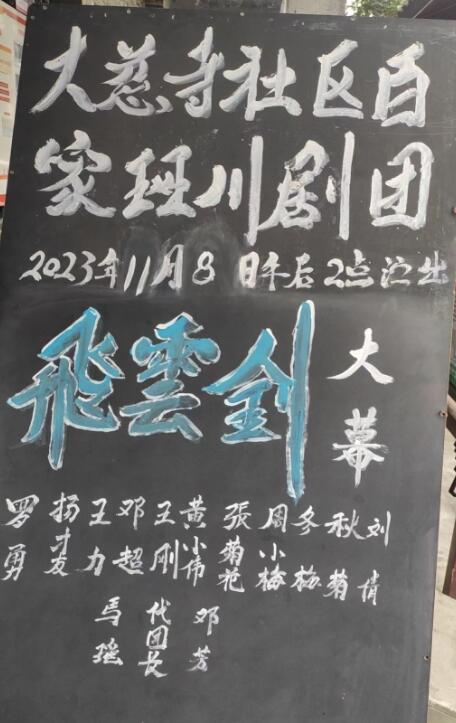 大慈寺社区百
家班川剧团
2023年11月8日午后2点演出
飛雲剑
大幕
罗勇
杨才友
王力
马瑶
邓超
王刚
代团长
黄小伟
邓芳
張菊花
周小梅
冬梅
秋菊
刘倩